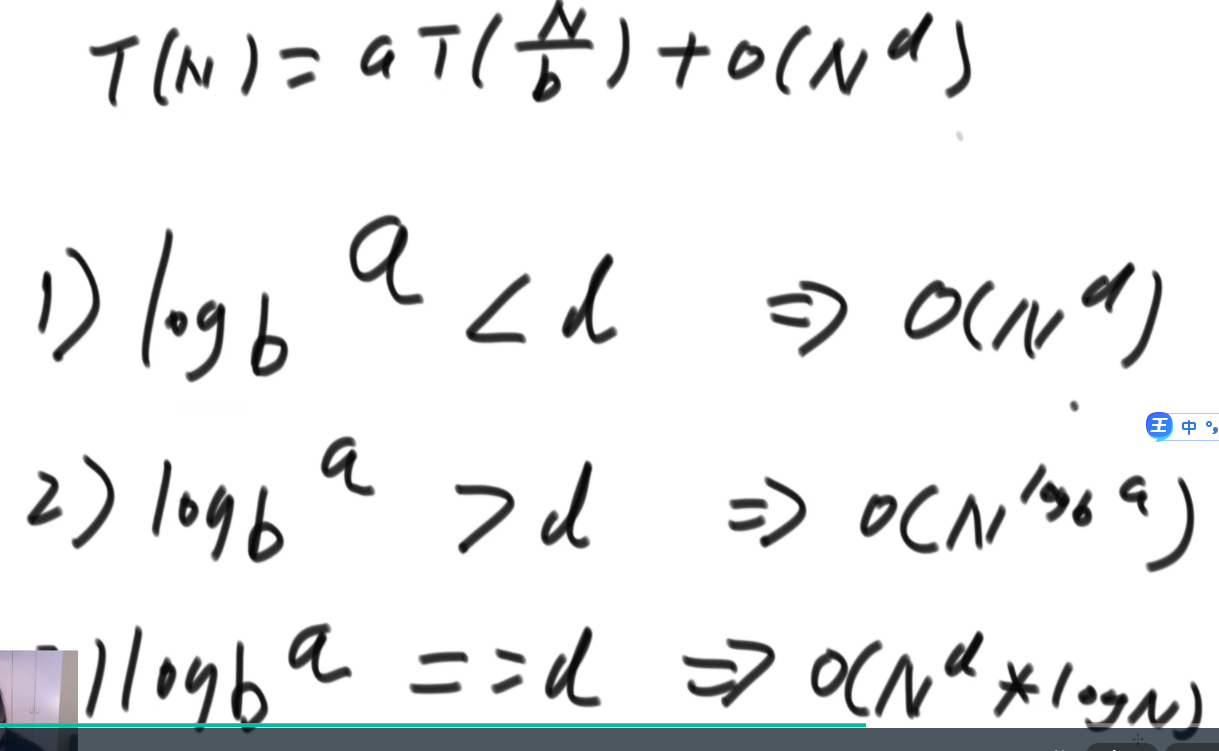 T(N) = aT(N/b) + O(N^d)
1) log_b^a < d ⇒ O(N^d)
王 中 °,
2) log_b^a > d ⇒ O(N^(log_b^a))
) log_b^a == d ⇒ O(N^d * logN)